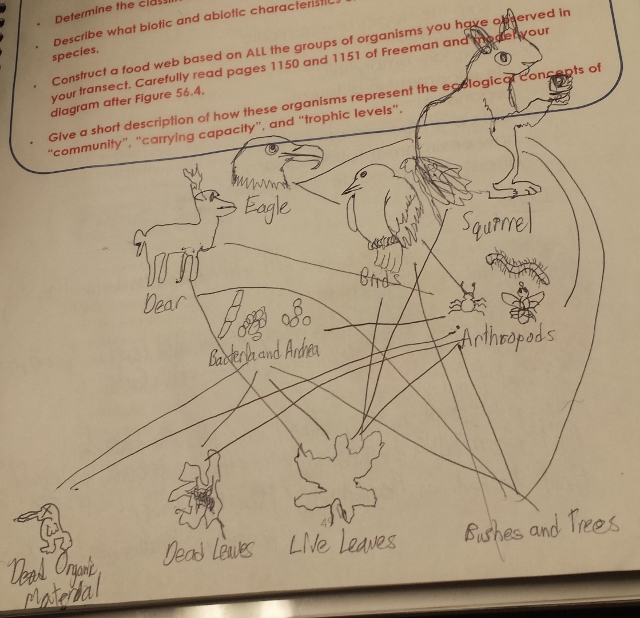 • Determine the
• Describe what biotic and abiotic characteristics
species.
• Construct a food web based on ALL the groups of organisms you have observed in
your transect. Carefully read pages 1150 and 1151 of Freeman and model your
diagram after Figure 56.4.
• Give a short description of how these organisms represent the ecological concepts of
"community", "carrying capacity", and "trophic levels".
Eagle
Squirrel
Dear
Birds
Bacteria and Archea
Arthropods
Dead Leaves
Live Leaves
Bushes and Trees
Dead Organic
Material